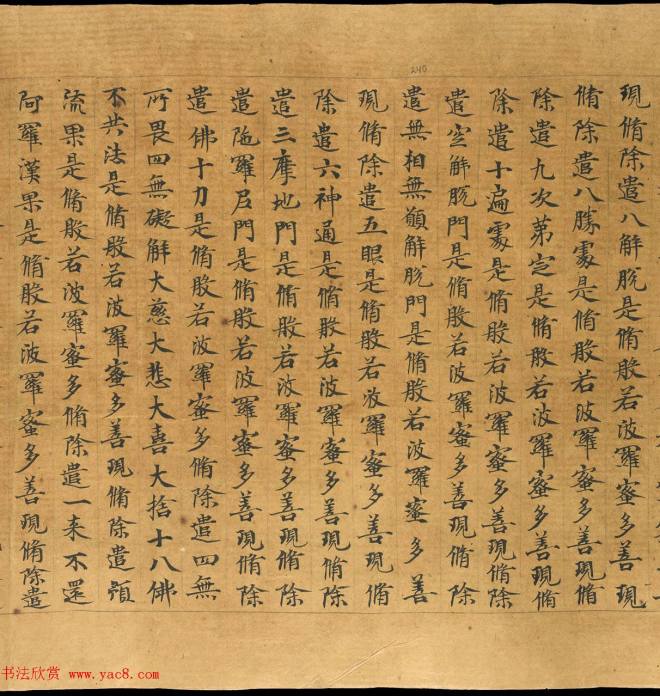 現脩除遣八解脫是脩般若波羅蜜多善現
脩除遣八勝處是脩般若波羅蜜多善現脩
除遣九次第定是脩般若波羅蜜多善現脩
除遣十遍處是脩般若波羅蜜多善現脩除
遣空解脫門是脩般若波羅蜜多善現脩除
遣無相無願解脫門是脩般若波羅蜜多善
現脩除遣五眼是脩般若波羅蜜多善現脩
除遣六神通是脩般若波羅蜜多善現脩除
遣三摩地門是脩般若波羅蜜多善現脩除
遣陁羅尼門是脩般若波羅蜜多善現脩除
遣佛十力是脩般若波羅蜜多脩除遣四無
所畏四無礙解大慈大悲大喜大捨十八佛
不共法是脩般若波羅蜜多善現脩除遣預
流果是脩般若波羅蜜多脩除遣一来不還
阿羅漢果是脩般若波羅蜜多善現脩除遣
240
书法欣赏 www.yac8.com